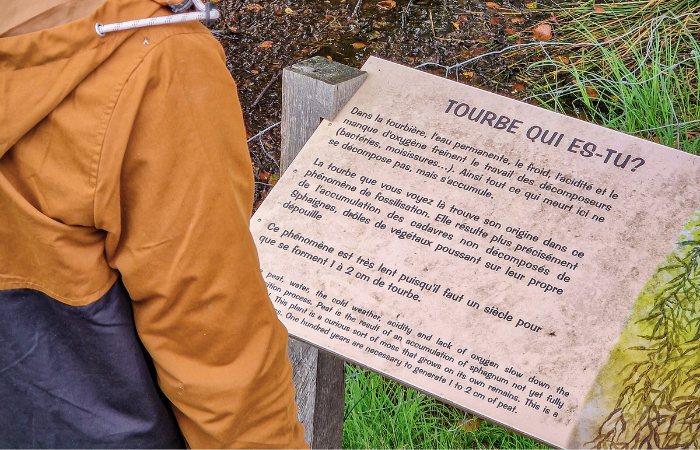 TOURBE QUI ES-TU?
Dans la tourbière, l'eau permanente, le froid, l'acidité et le
manque d'oxygène freinent le travail des décomposeurs
(bactéries, moisissures...). Ainsi tout ce qui meurt ici ne
se décompose pas, mais s'accumule.
La tourbe que vous voyez là trouve son origine dans ce
phénomène de fossilisation. Elle résulte plus précisément
de l'accumulation des cadavres non décomposés de
Sphaignes, drôles de végétaux poussant sur leur propre
dépouille
Ce phénomène est très lent puisqu'il faut un siècle pour
que se forment 1 à 2 cm de tourbe.
peat, water, the cold weather, acidity and lack of oxygen slow down the
process. Peat is the result of an accumulation of sphagnum not yet fully
This plant is a curious sort of moss that grows on its own remains. This is a
One hundred years are necessary to generate 1 to 2 cm of peat.